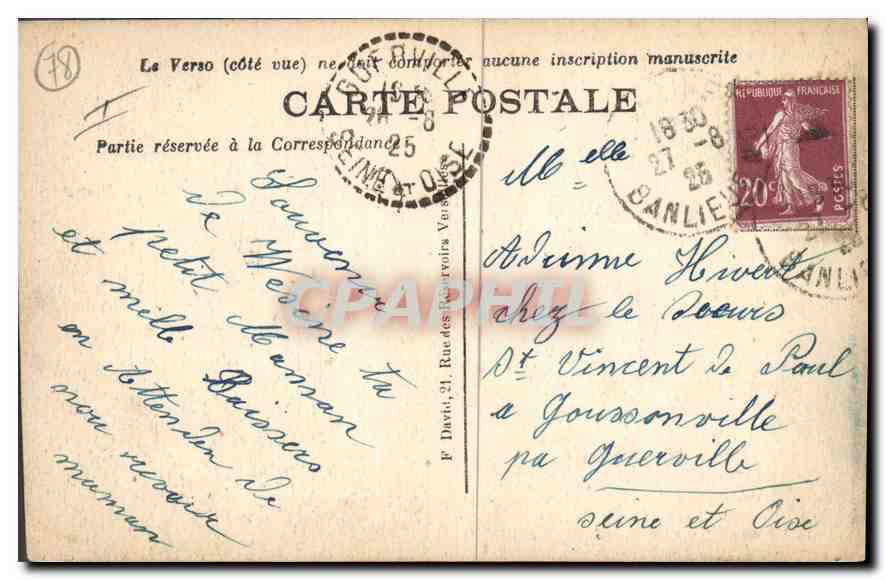 78
Le Verso (côté vue) ne doit comporter aucune inscription manuscrite
CARTE POSTALE
Partie réservée à la Correspondance
GUERVILLE
25
SEINE ET OISE
18 30
27 -8
25
BANLIEUE
REPUBLIQUE FRANÇAISE
20c
POSTES
BANLIE
Souvenir
de Weseine ta
petit Maman
et mille Baissers
en Attenden de
nou revoir
maman
F David, 21, Rue des Réservoirs Versailles
CPAPHIL
Melle
Adrienne Hivert
chez le soeurs
St Vincent de Paul
a Goussonville
pa Guerville
seine et Oise